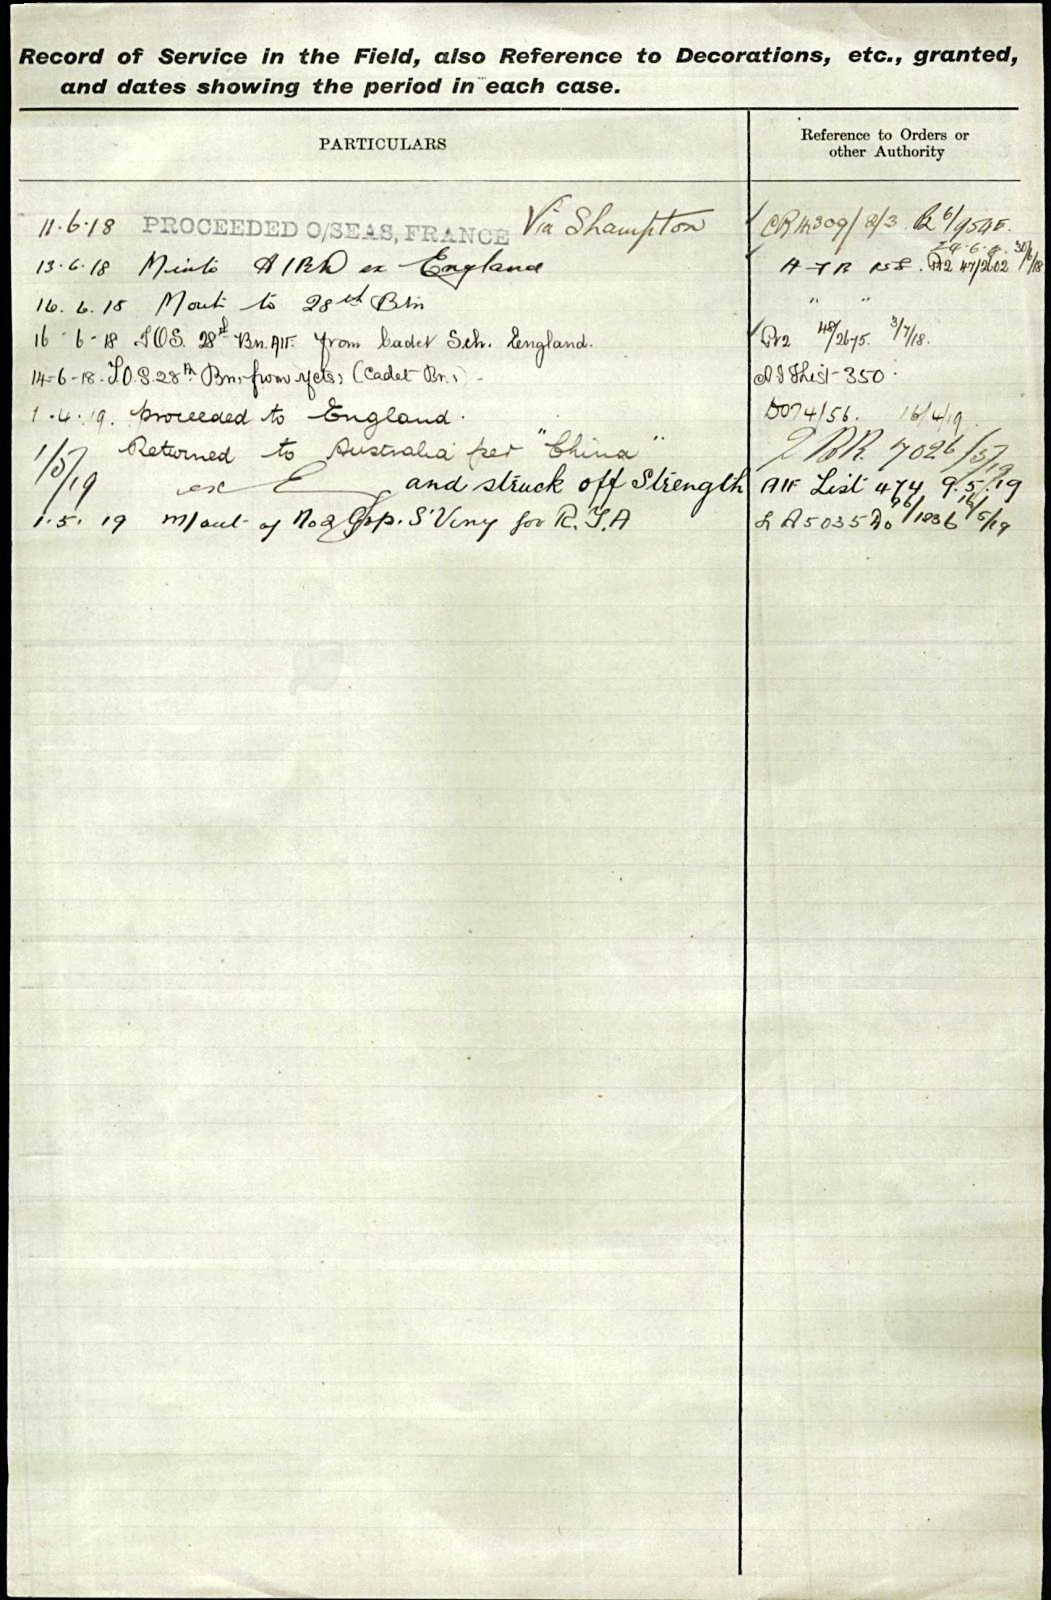 Record of Service in the Field, also Reference to Decorations, etc., granted,
and dates showing the period in each case.
PARTICULARS
Reference to Orders or
other Authority
11.6.18 PROCEEDED O/SEAS, FRANCE Via Shampton
13.6.18 M into ex England
16.6.18 M out to 28th Btn " "
16-6-18 TOS. 28th Bn. AIF. from Cadet Sch. England. 48/2675. 3/7/18.
14-6-18. T.O.S. 28th Bn. from (Cadet Bn.) List 350
1.4.19. proceeded to England. DO74/56. 16/4/19.
1/5/19 Returned to Australia per "China"
ex E and struck off Strength AIF List 474 9.5.19
1.5.19 m/out of No 2 Grp. S'Viny for R.T.A